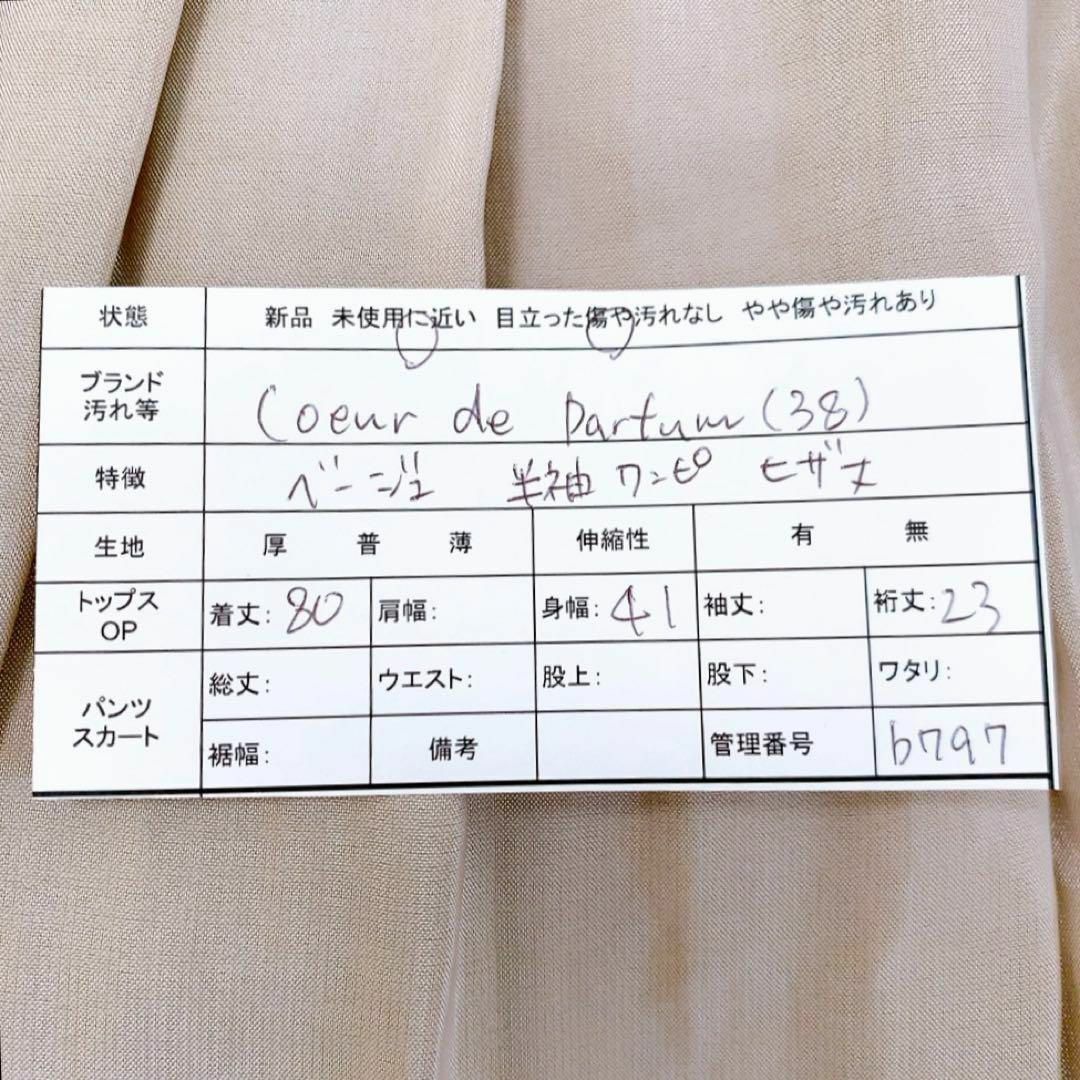 状態 新品 未使用に近い 目立った傷や汚れなし やや傷や汚れあり
ブランド
汚れ等
Coeur de Partum (38)
特徴 ベージュ 半袖ワンピ ヒザ丈
生地 厚 普 薄 伸縮性 有 無
トップス
OP
着丈: 80 肩幅: 身幅: 41 袖丈: 裄丈: 23
パンツ
スカート
総丈: ウエスト: 股上: 股下: ワタリ:
裾幅: 備考 管理番号 b797